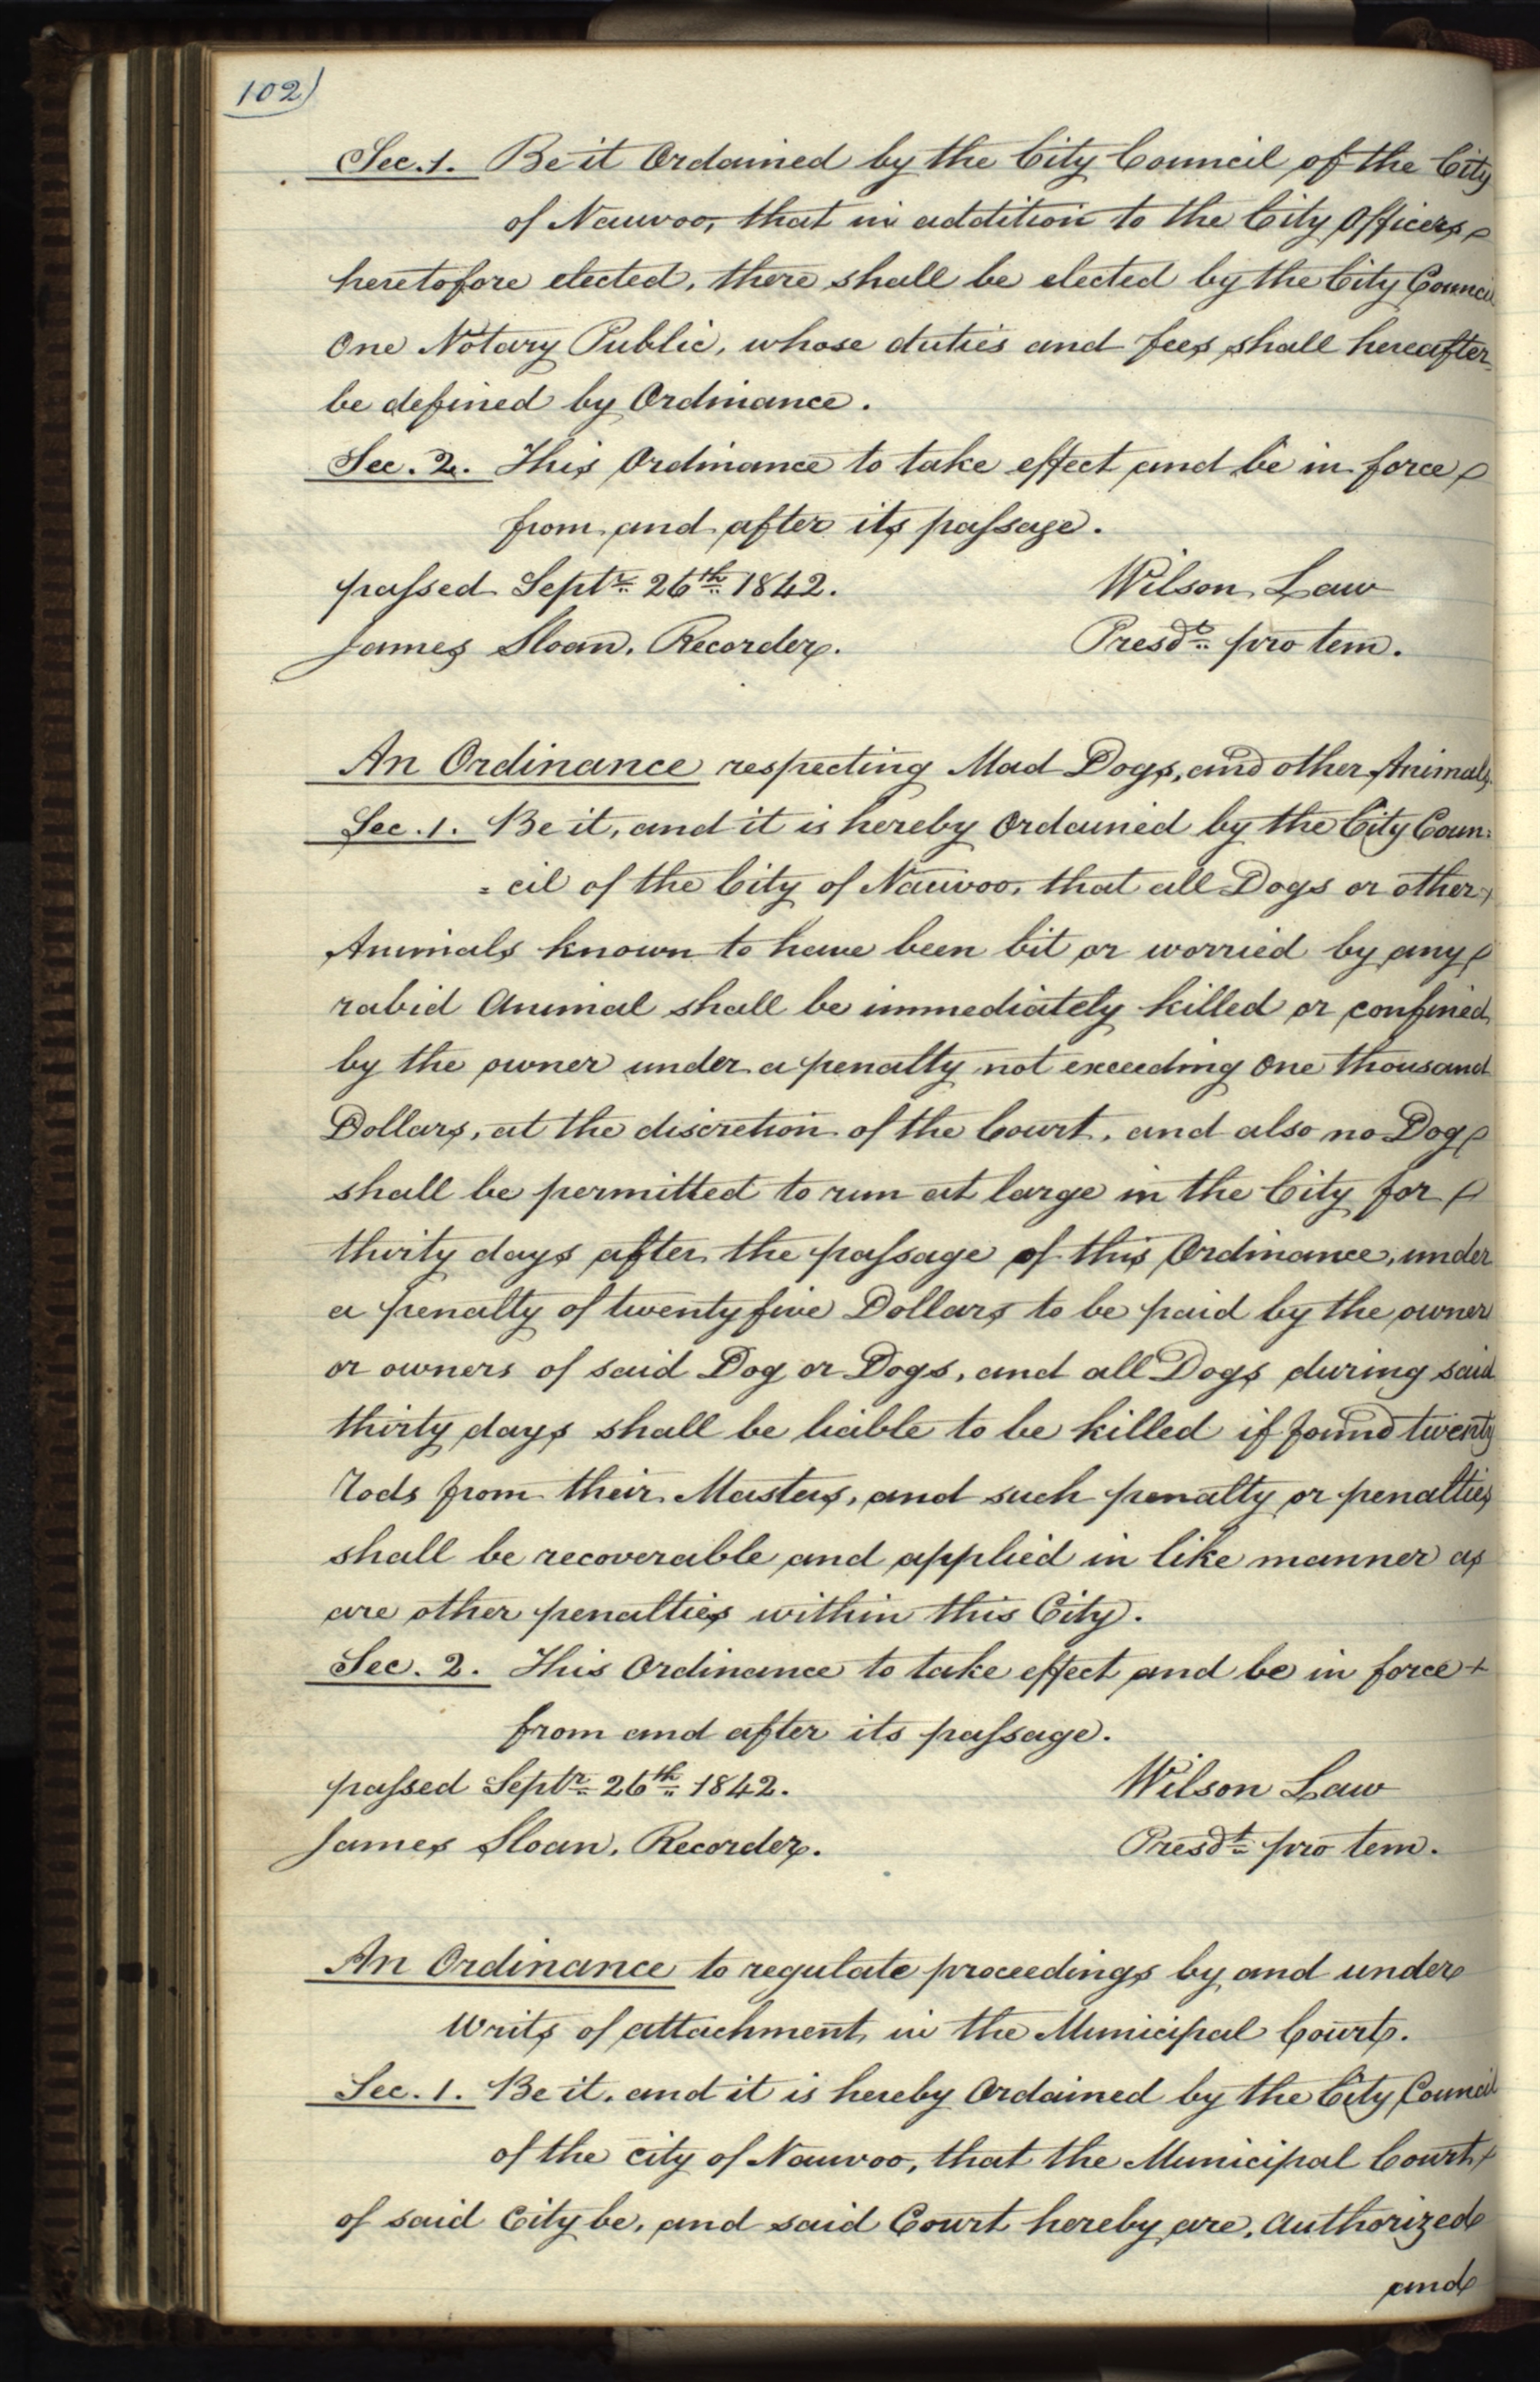 102)
Sec. 1. Be it Ordained by the City Council of the City
of Nauvoo, that in addition to the City Officers
heretofore elected, there shall be elected by the City Council
One Notary Public, whose duties and fees shall hereafter
be defined by Ordinance.
Sec. 2. This Ordinance to take effect and be in force
from and after its passage.
passed Septr. 26th. 1842. Wilson Law
James Sloan, Recorder. Presdt. pro tem.
An Ordinance respecting Mad Dogs, and other Animals.
Sec. 1. Be it, and it is hereby Ordained by the City Coun=
=cil of the City of Nauvoo, that all Dogs or other
Animals known to have been bit or worried by any
rabid Animal shall be immediately killed or confined
by the owner under a penalty not exceeding One thousand
Dollars, at the discretion of the Court, and also no Dog
shall be permitted to run at large in the City for
thirty days after the passage of this Ordinance, under
a penalty of twenty five Dollars to be paid by the owner
or owners of said Dog or Dogs, and all Dogs during said
thirty days shall be liable to be killed if found twenty
rods from their Masters, and such penalty or penalties
shall be recoverable and applied in like manner as
are other penalties within this City.
Sec. 2. This Ordinance to take effect and be in force
from and after its passage.
passed Septr. 26th. 1842. Wilson Law
James Sloan, Recorder. Presdt. pro tem.
An Ordinance to regulate proceedings by and under
writs of attachment, in the Municipal Court.
Sec. 1. Be it, and it is hereby Ordained by the City Council
of the city of Nauvoo, that the Municipal Court
of said City be, and said Court hereby are, authorized
and